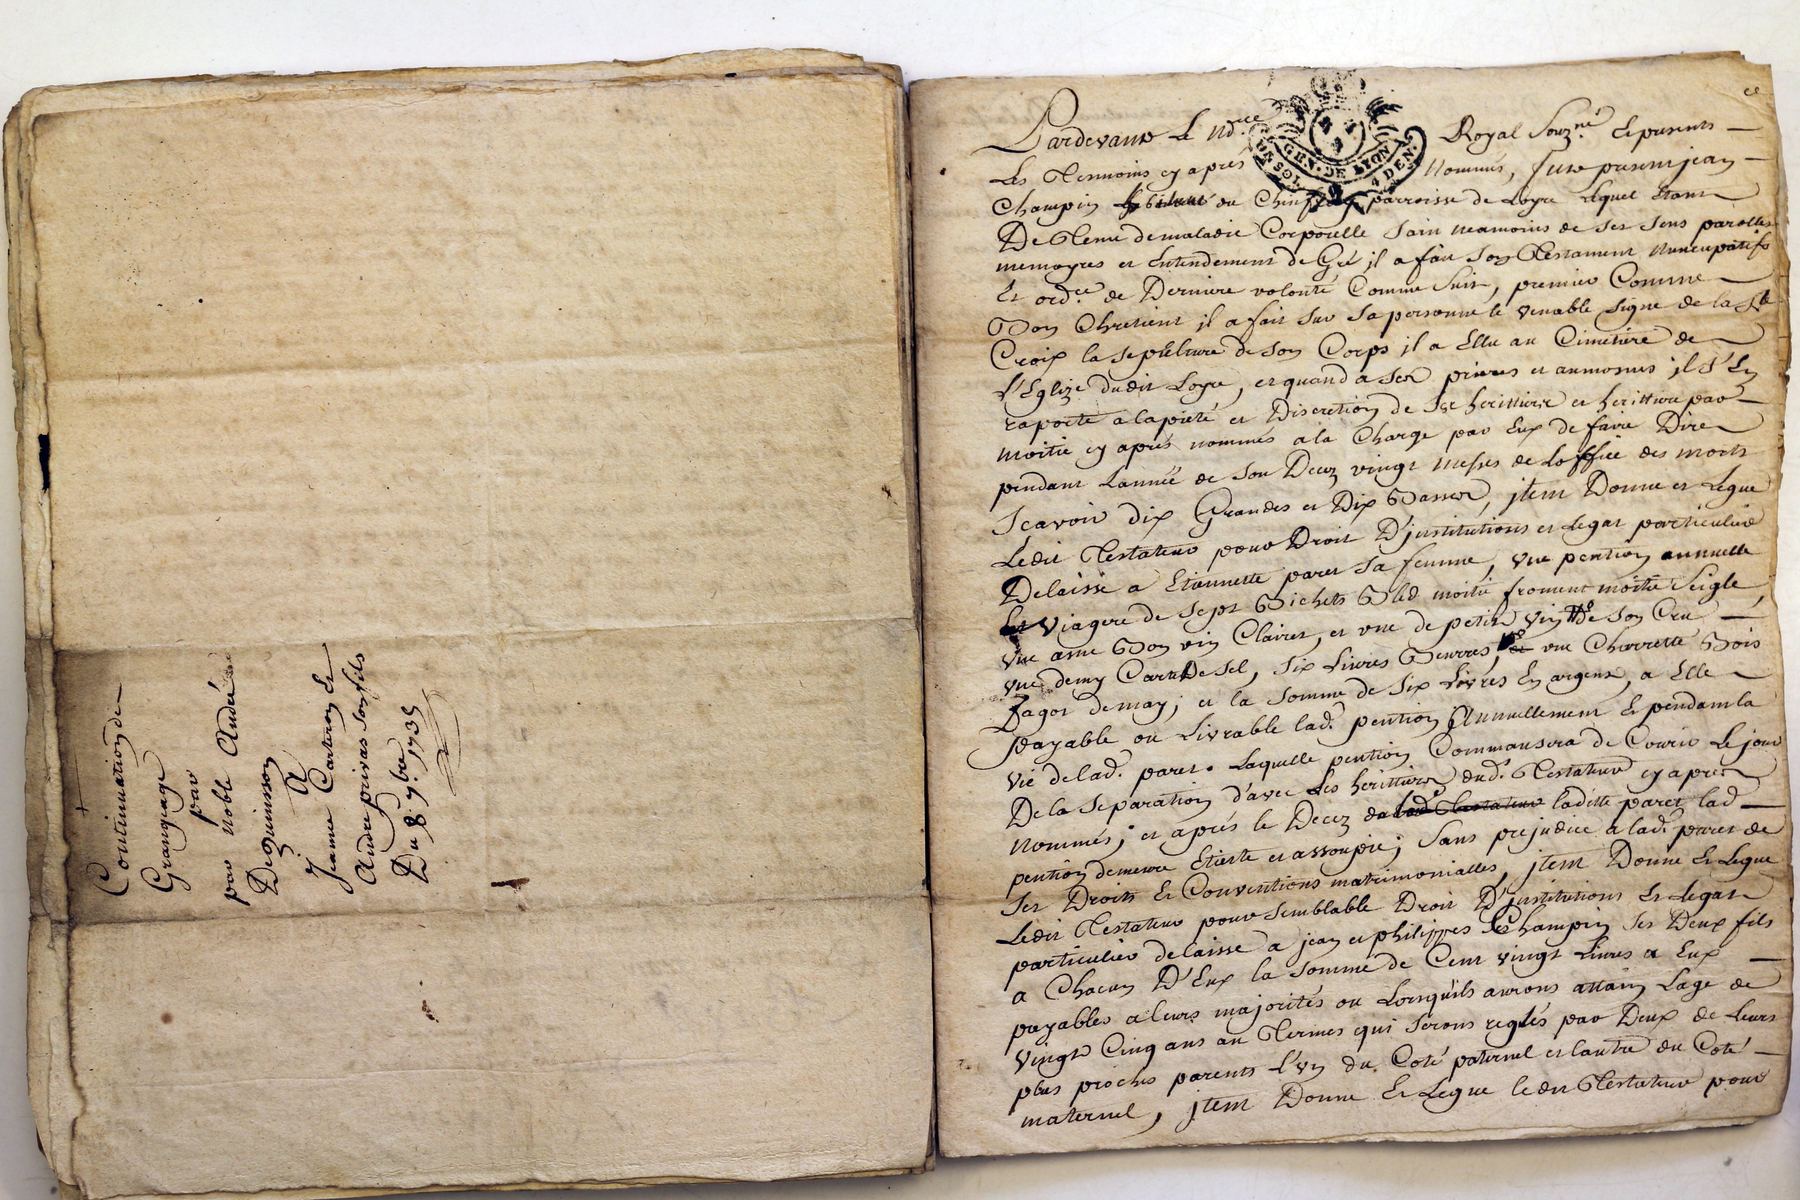 Continuation de
Grangeage
par
par noble André
Deguinson
A
Jeanne Carteron et
André privas son fils
Du 8 7.bre 1735
GEN. DE LYON
DE SOL 4 DEN.
Pardevant Le Nore Royal Souzné Et presents
Les Tesmoins cy aprés Nommés, fut present jean
Champin du Chinf parroisse de Loyre Lequel Etant
De Tenu de maladie Corporelle sain neamoins de ses sens parolles
memoyres et Entendement de Gré il a fait son Testament Nuncupatif
Et ord.ce de Derniere volonté Comme suit, premier Comme
Bon Chretient il a fait sur sa personne le venable signe de la Ste
Croix la sepulture de son Corps il a Ellu au Cimetiere de
l'Eglize dudit Loyre, et quand a ses prieres et aumosnes il s'En
raporte a la pieté et Discretion de ses herittiers et herittiere par
moitié cy aprés nommés a la Charge par Eux de faire Dire
pendant Lannée de son Decez vingt messes de Loffice des morts
scavoir dix Grandes et Dix Basses, jtem Donne et Legue
Ledit Testateur pour Droit D'jnstitutions et Legat particulier
Delaisse a Etiennette paret sa femme, vne pention annuelle
Et viagere de sept Bichets Bled moitié froment moitié seigle,
vne anne Bon vin Clairet, et vne de petit vin de son Cru
vne demy Carte De sel, six Livres Beurres, vne Charrette Bois
fagot de may; et la somme de six Livres En argent, a Elle
payable ou Livrable lad. pention Annuellement Et pendant la
vie de lad. paret. Laquelle pention Commansera de Courir Le jour
De la separation d'avec Les herittiers dud. Testateur cy aprés
nommés; et aprés le Decez de lad. Testateur laditte paret lad
pention demeure Etiente et assoupie; sans prejudice a lad. paret de
ses Droits Et Conventions matrimonialles, jtem Donne Et Legue
Ledit Testateur pour semblable Droit D'jnstitutions Et Legat
particulier delaisse a jean et philippes Champin ses Deux fils
a Chacun D'Eux la somme de Cent vingt Livres a Eux
payables a leurs majorités ou Lorsqu'ils auront attain Lage de
vingt Cinq ans au Termes qui seront reglés par Deux de Leurs
plus proches parents l'vn du Coté paternel et lautre du Coté
maternel, jtem Donne Et Legue ledit Testateur pour